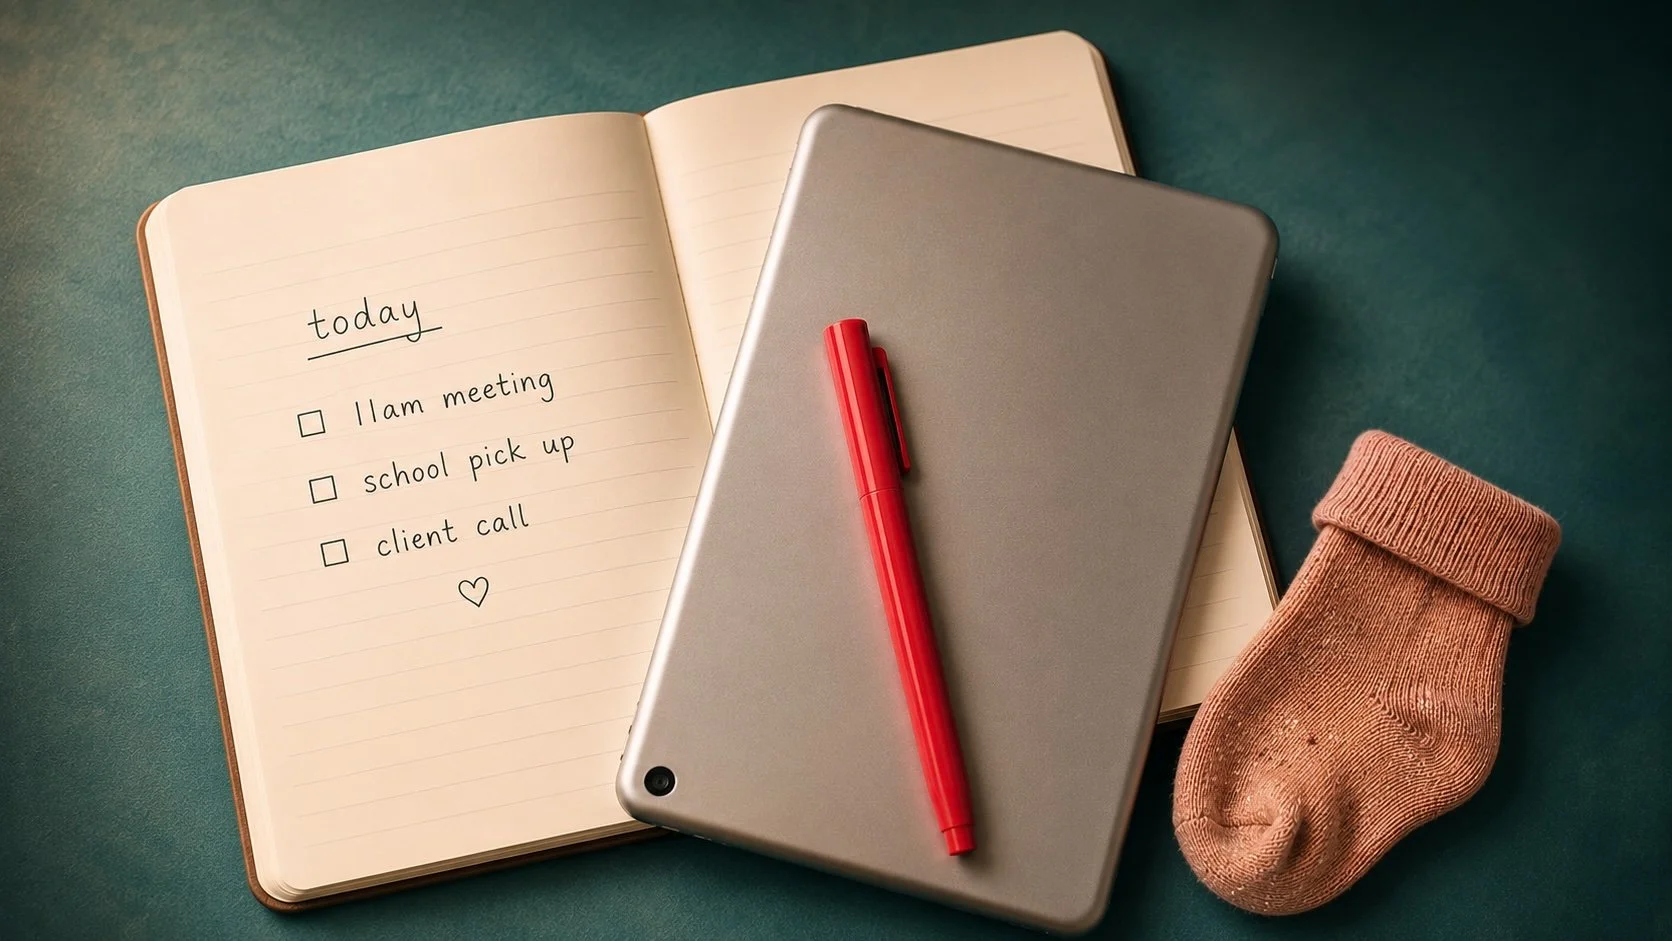 today
11am meeting
school pick up
client call